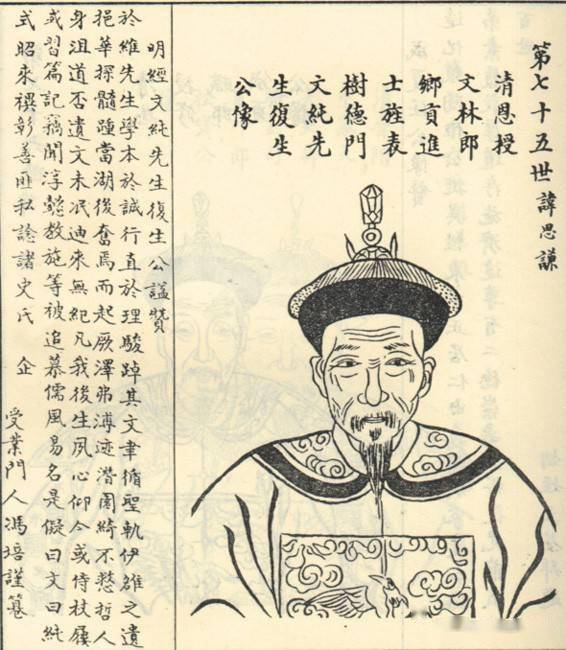 第七十五世 諱思謙
清恩授
文林郎
鄉貢進
士旌表
樹德門
文純先
生復生
公像
明經文純先生復生公謚贊
於維先生學本於誠行直於理駿踔其文聿循聖軌伊雒之遺
挹華探髓踵當湖後奮焉而起厥澤弗溥迹潛不憖哲人
身沮道否遺文未泯迪來無紀凡我後生夙心仰今或侍杖屨
或習篇記竊聞淳懿教施等被追慕儒風易名是儗曰文曰純
式昭來禩彰善匪私諗諸史氏 企
受業門人馮培謹篹